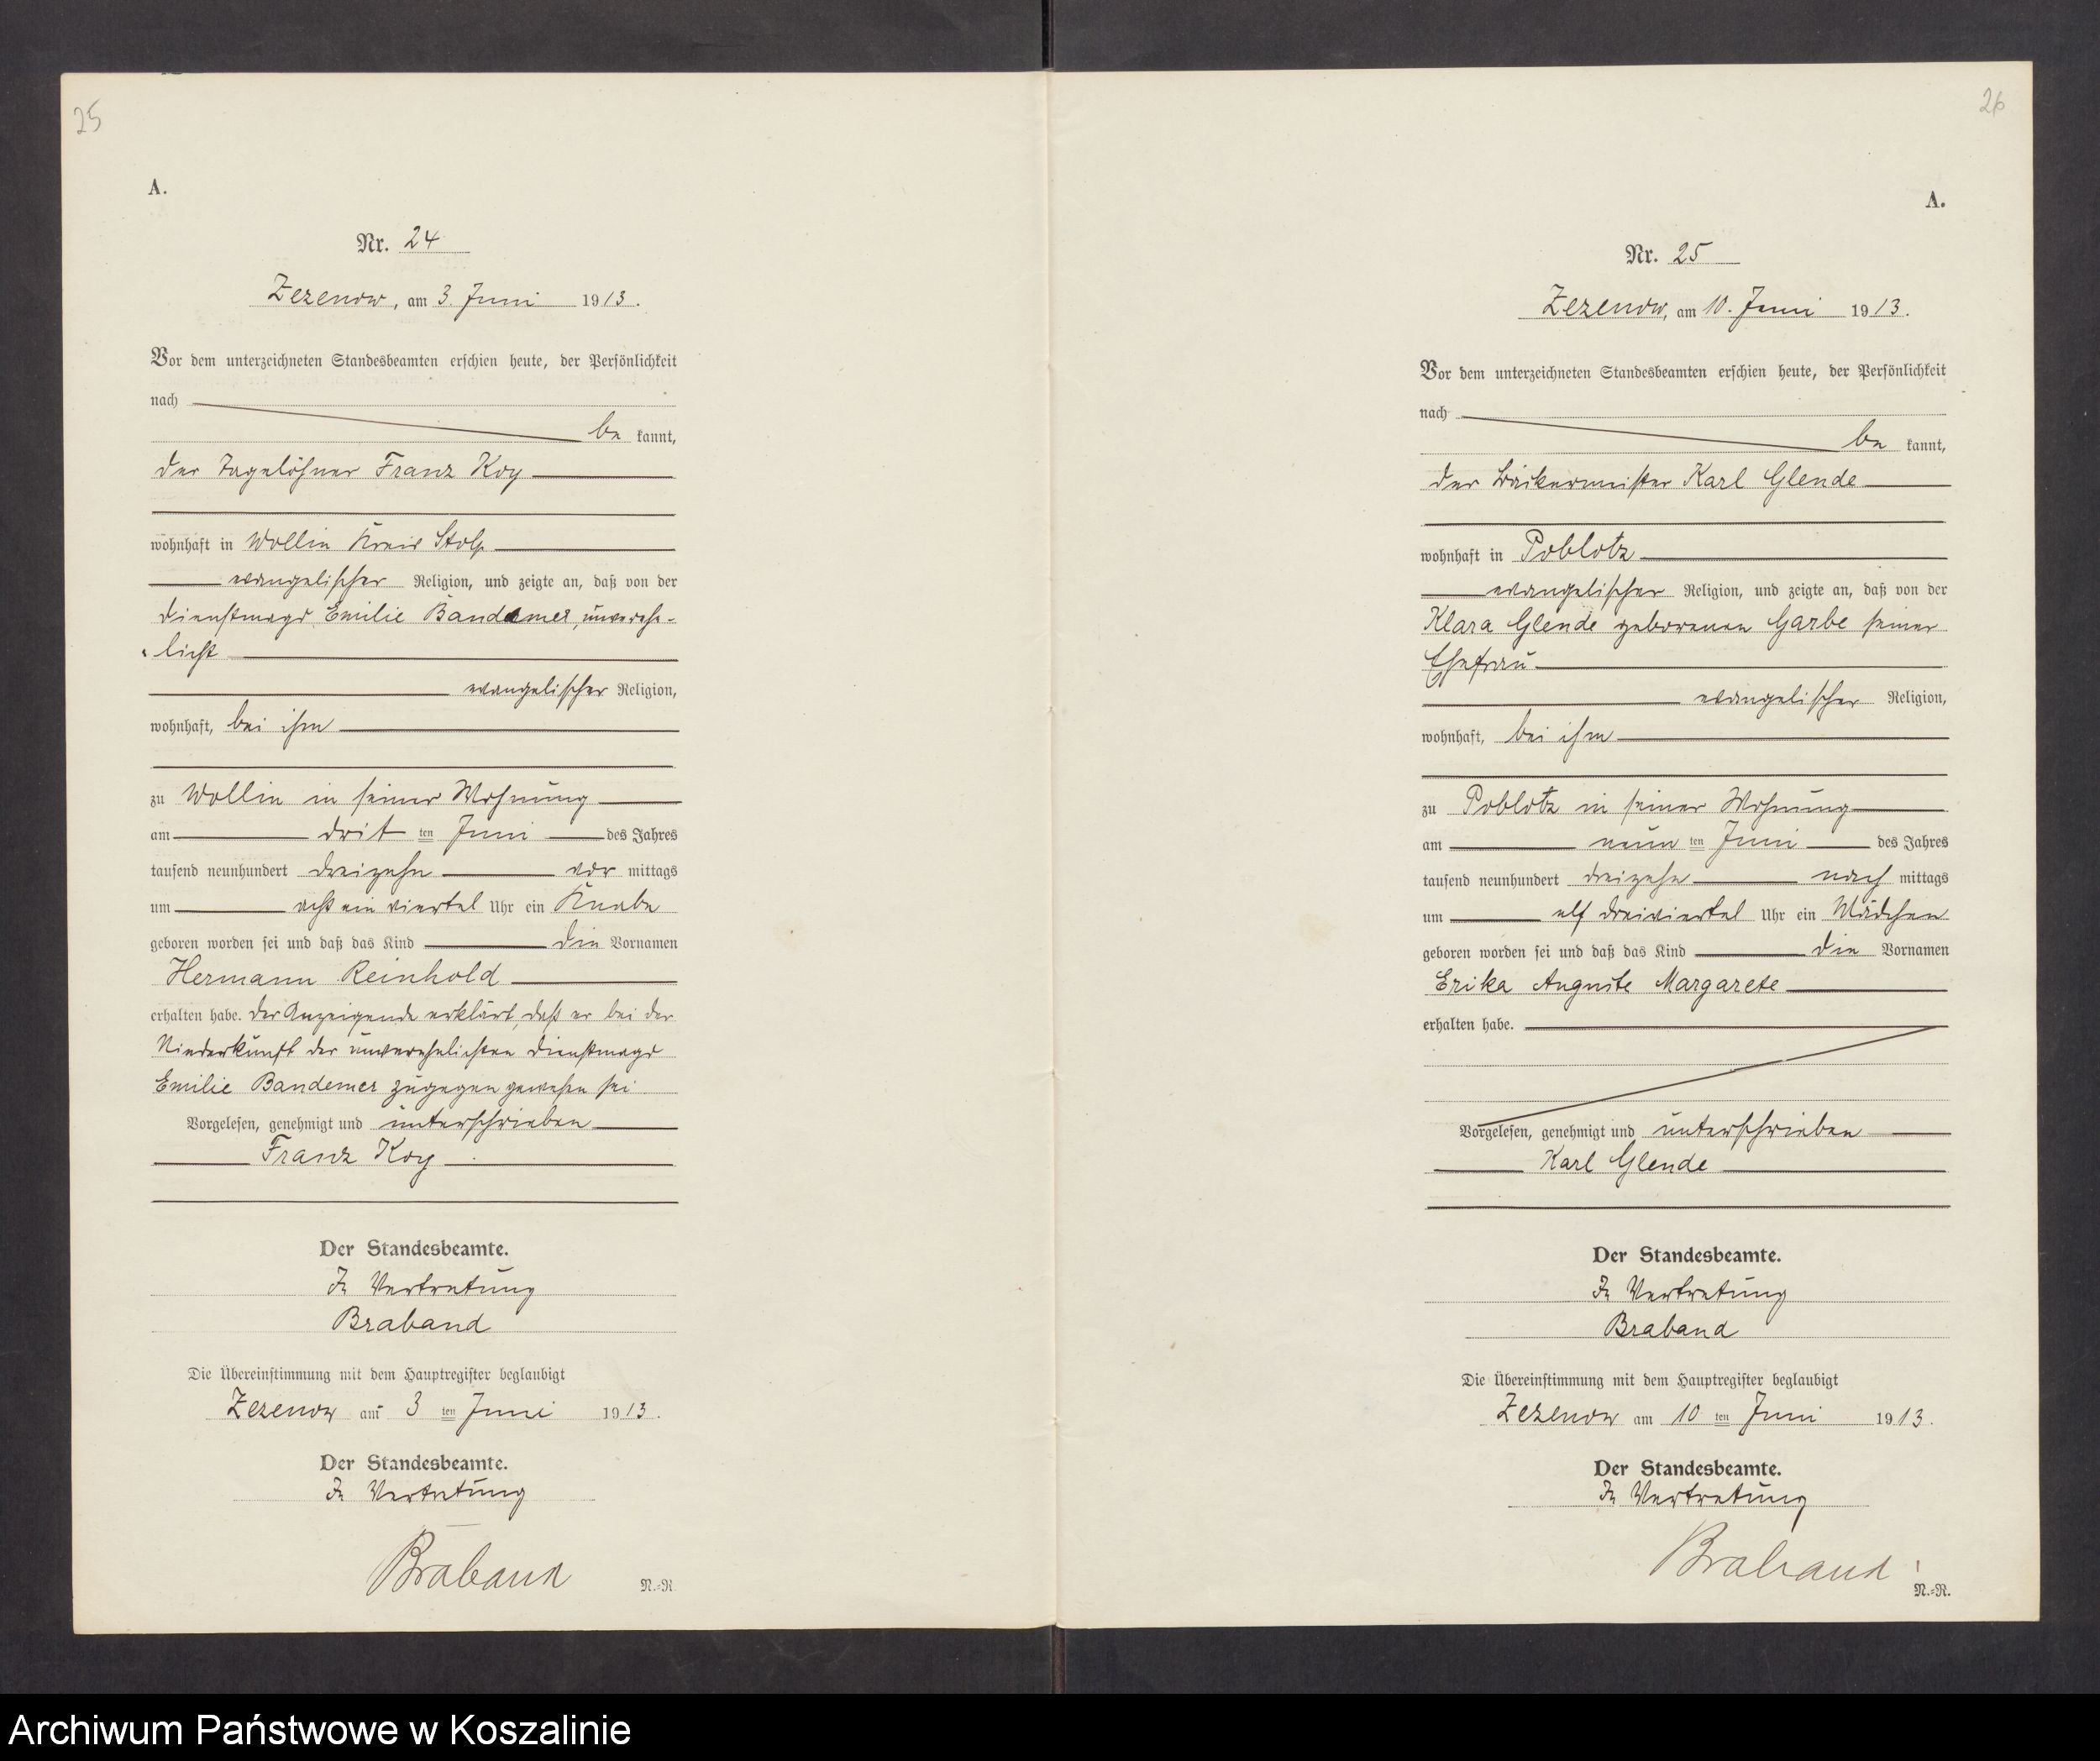 25
A.
Nr. 24
Zezenow, am 3. Juni 1913.
Vor dem unterzeichneten Standesbeamten erschien heute, der Persönlichkeit
nach
be kannt,
der Tagelöhner Franz Koy
wohnhaft in Wollin Kreis Stolp
evangelischer Religion, und zeigte an, daß von der
Dienstmagd Emilie Bandemer, unverehe-
licht
evangelischer Religion,
wohnhaft, bei ihm
zu Wollin in seiner Wohnung
am drit ten Juni des Jahres
tausend neunhundert dreizehn vor mittags
um acht ein viertel Uhr ein Knabe
geboren worden sei und daß das Kind die Vornamen
Hermann Reinhold
erhalten habe. Der Anzeigende erklärt, daß er bei der
Niederkunft der unverehelichten Dienstmagd
Emilie Bandemer zugegen gewesen sei
Vorgelesen, genehmigt und unterschrieben
Franz Koy
Der Standesbeamte.
In Vertretung
Braband
Die Übereinstimmung mit dem Hauptregister beglaubigt
Zezenow am 3 ten Juni 1913.
Der Standesbeamte.
In Vertretung
Braband
N.=R.
26
A.
Nr. 25
Zezenow, am 10. Juni 1913.
Vor dem unterzeichneten Standesbeamten erschien heute, der Persönlichkeit
nach
be kannt,
der Bäckermeister Karl Glende
wohnhaft in Poblotz
evangelischer Religion, und zeigte an, daß von der
Klara Glende geborenen Garbe seiner
Ehefrau
evangelischer Religion,
wohnhaft, bei ihm
zu Poblotz in seiner Wohnung
am neun ten Juni des Jahres
tausend neunhundert dreizehn nach mittags
um elf dreiviertel Uhr ein Mädchen
geboren worden sei und daß das Kind die Vornamen
Erika Auguste Margarete
erhalten habe.
Vorgelesen, genehmigt und unterschrieben
Karl Glende
Der Standesbeamte.
In Vertretung
Braband
Die Übereinstimmung mit dem Hauptregister beglaubigt
Zezenow am 10 ten Juni 1913.
Der Standesbeamte.
In Vertretung
Braband
N.=R.
Archiwum Państwowe w Koszalinie